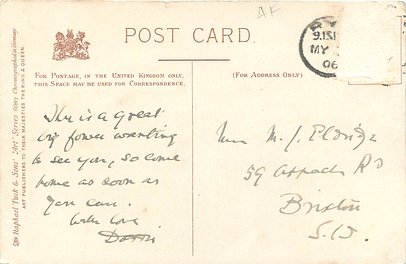 AF
POST CARD.
FOR POSTAGE, IN THE UNITED KINGDOM ONLY,
THIS SPACE MAY BE USED FOR CORRESPONDENCE.
(FOR ADDRESS ONLY)
9.15
MY
06
Raphael Tuck & Sons' "Art" Series
ART PUBLISHERS TO THEIR MAJESTIES THE KING & QUEEN.
is a great
big wanting
to see you, so come
home as soon as
you can.
With love
M. J. Eldridge
59 Rd
Brixton
S.W.